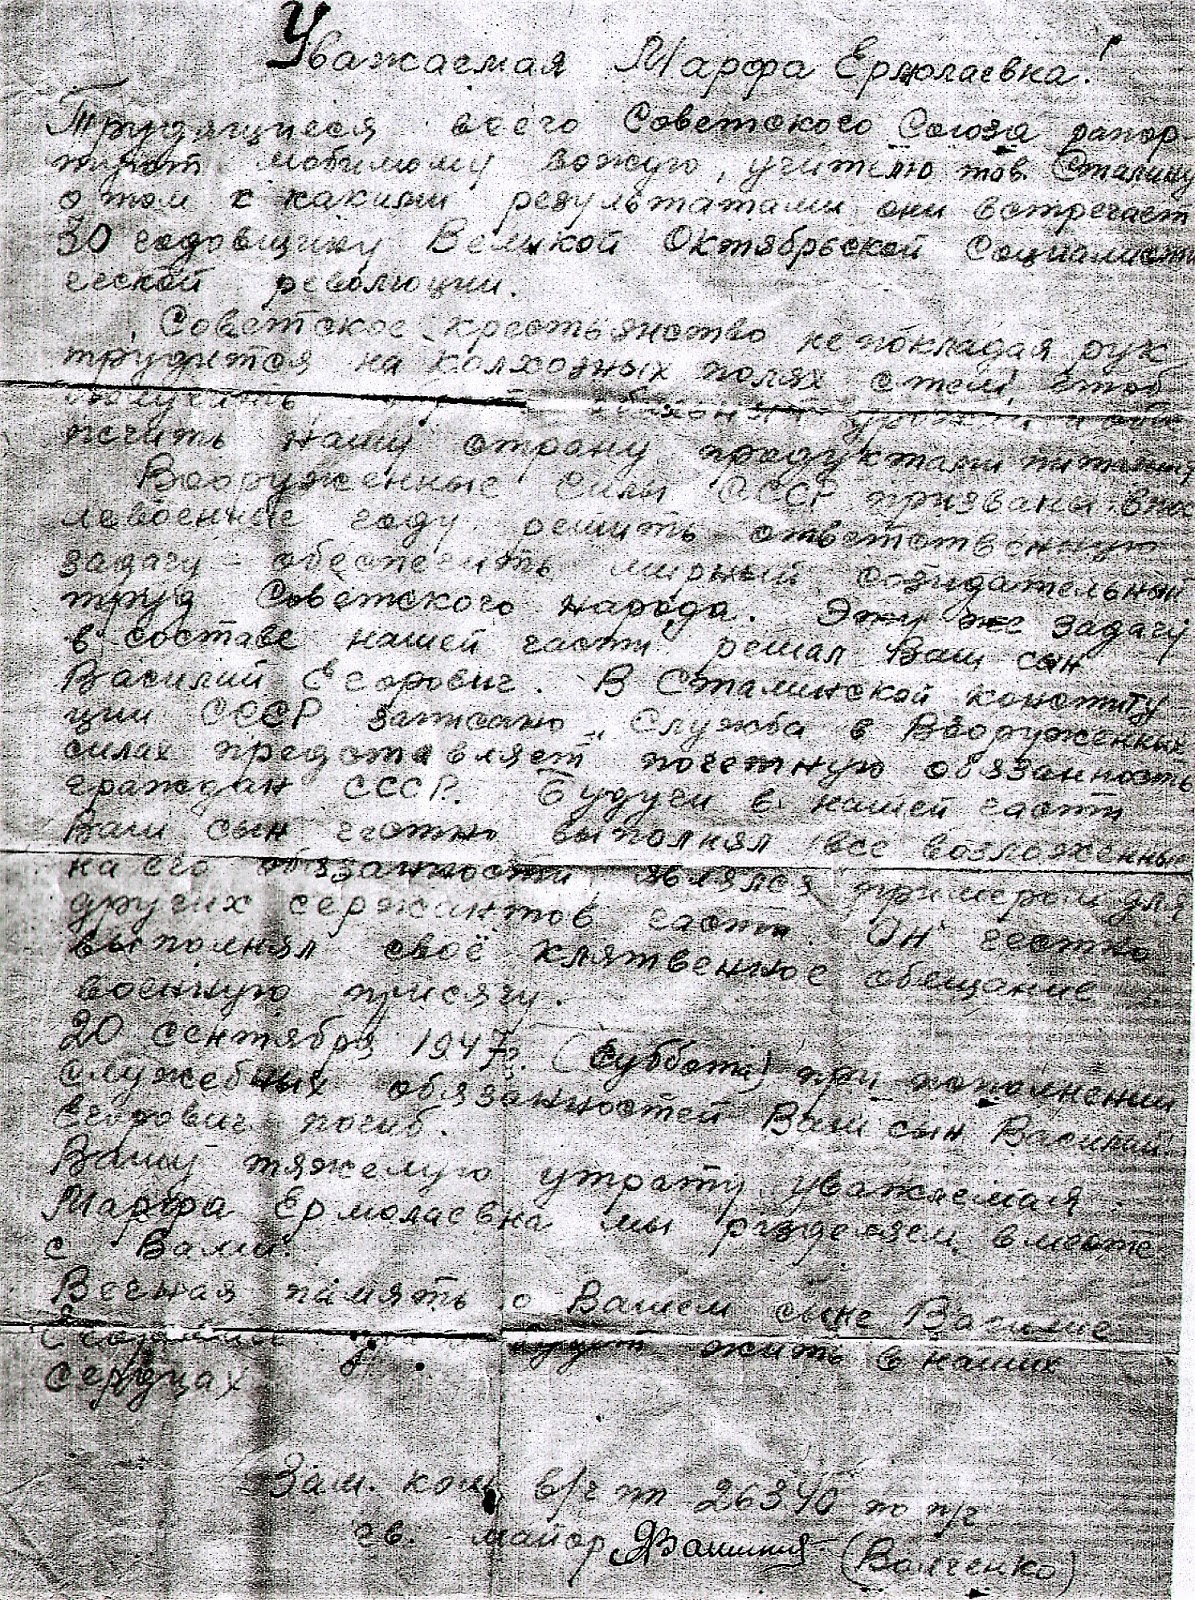 Уважаемая Марфа Ермолаевна!
Трудящиеся всего Советского Союза рапор-
туют любимому вождю, учителю тов. Сталину
о том с какими результатами они встречают
30 годовщину Великой Октябрьской Социалисти
ческой революции.
Советское крестьянство непокладая рук
трудится на колхозных полях с тем, чтоб
печить нашу страну продуктами питания
Вооруженные Силы СССР призваны в пос
левоенные году решить ответственную
задачу - обеспечить мирный созидательный
труд Советского народа. Эту же задачу
в составе нашей части решал Ваш сын
Василий Егорович. В Сталинской конститу
ции СССР записано „Служба в Вооруженных
силах представляет почетную обязанность
граждан СССР. Будучи в нашей части
Ваш сын честно выполнял все возложенные
на его обязанности, являлся примером для
других сержантов части. Он честно
выполнял своё клятвенное обещание
военную присягу.
20 сентября 1947г. (Суббота) при исполнении
служебных обязанностей Ваш сын Василий
Егорович погиб.
Вашу тяжелую утрату уважаемая
Марфа Ермолаевна мы разделяем вместе
с Вами.
Вечная память о Вашем сыне Василие
будут жить в наших
сердцах
Зам. ком. в/ч пп 26390 по п/ч
гв. майор (Волченко)